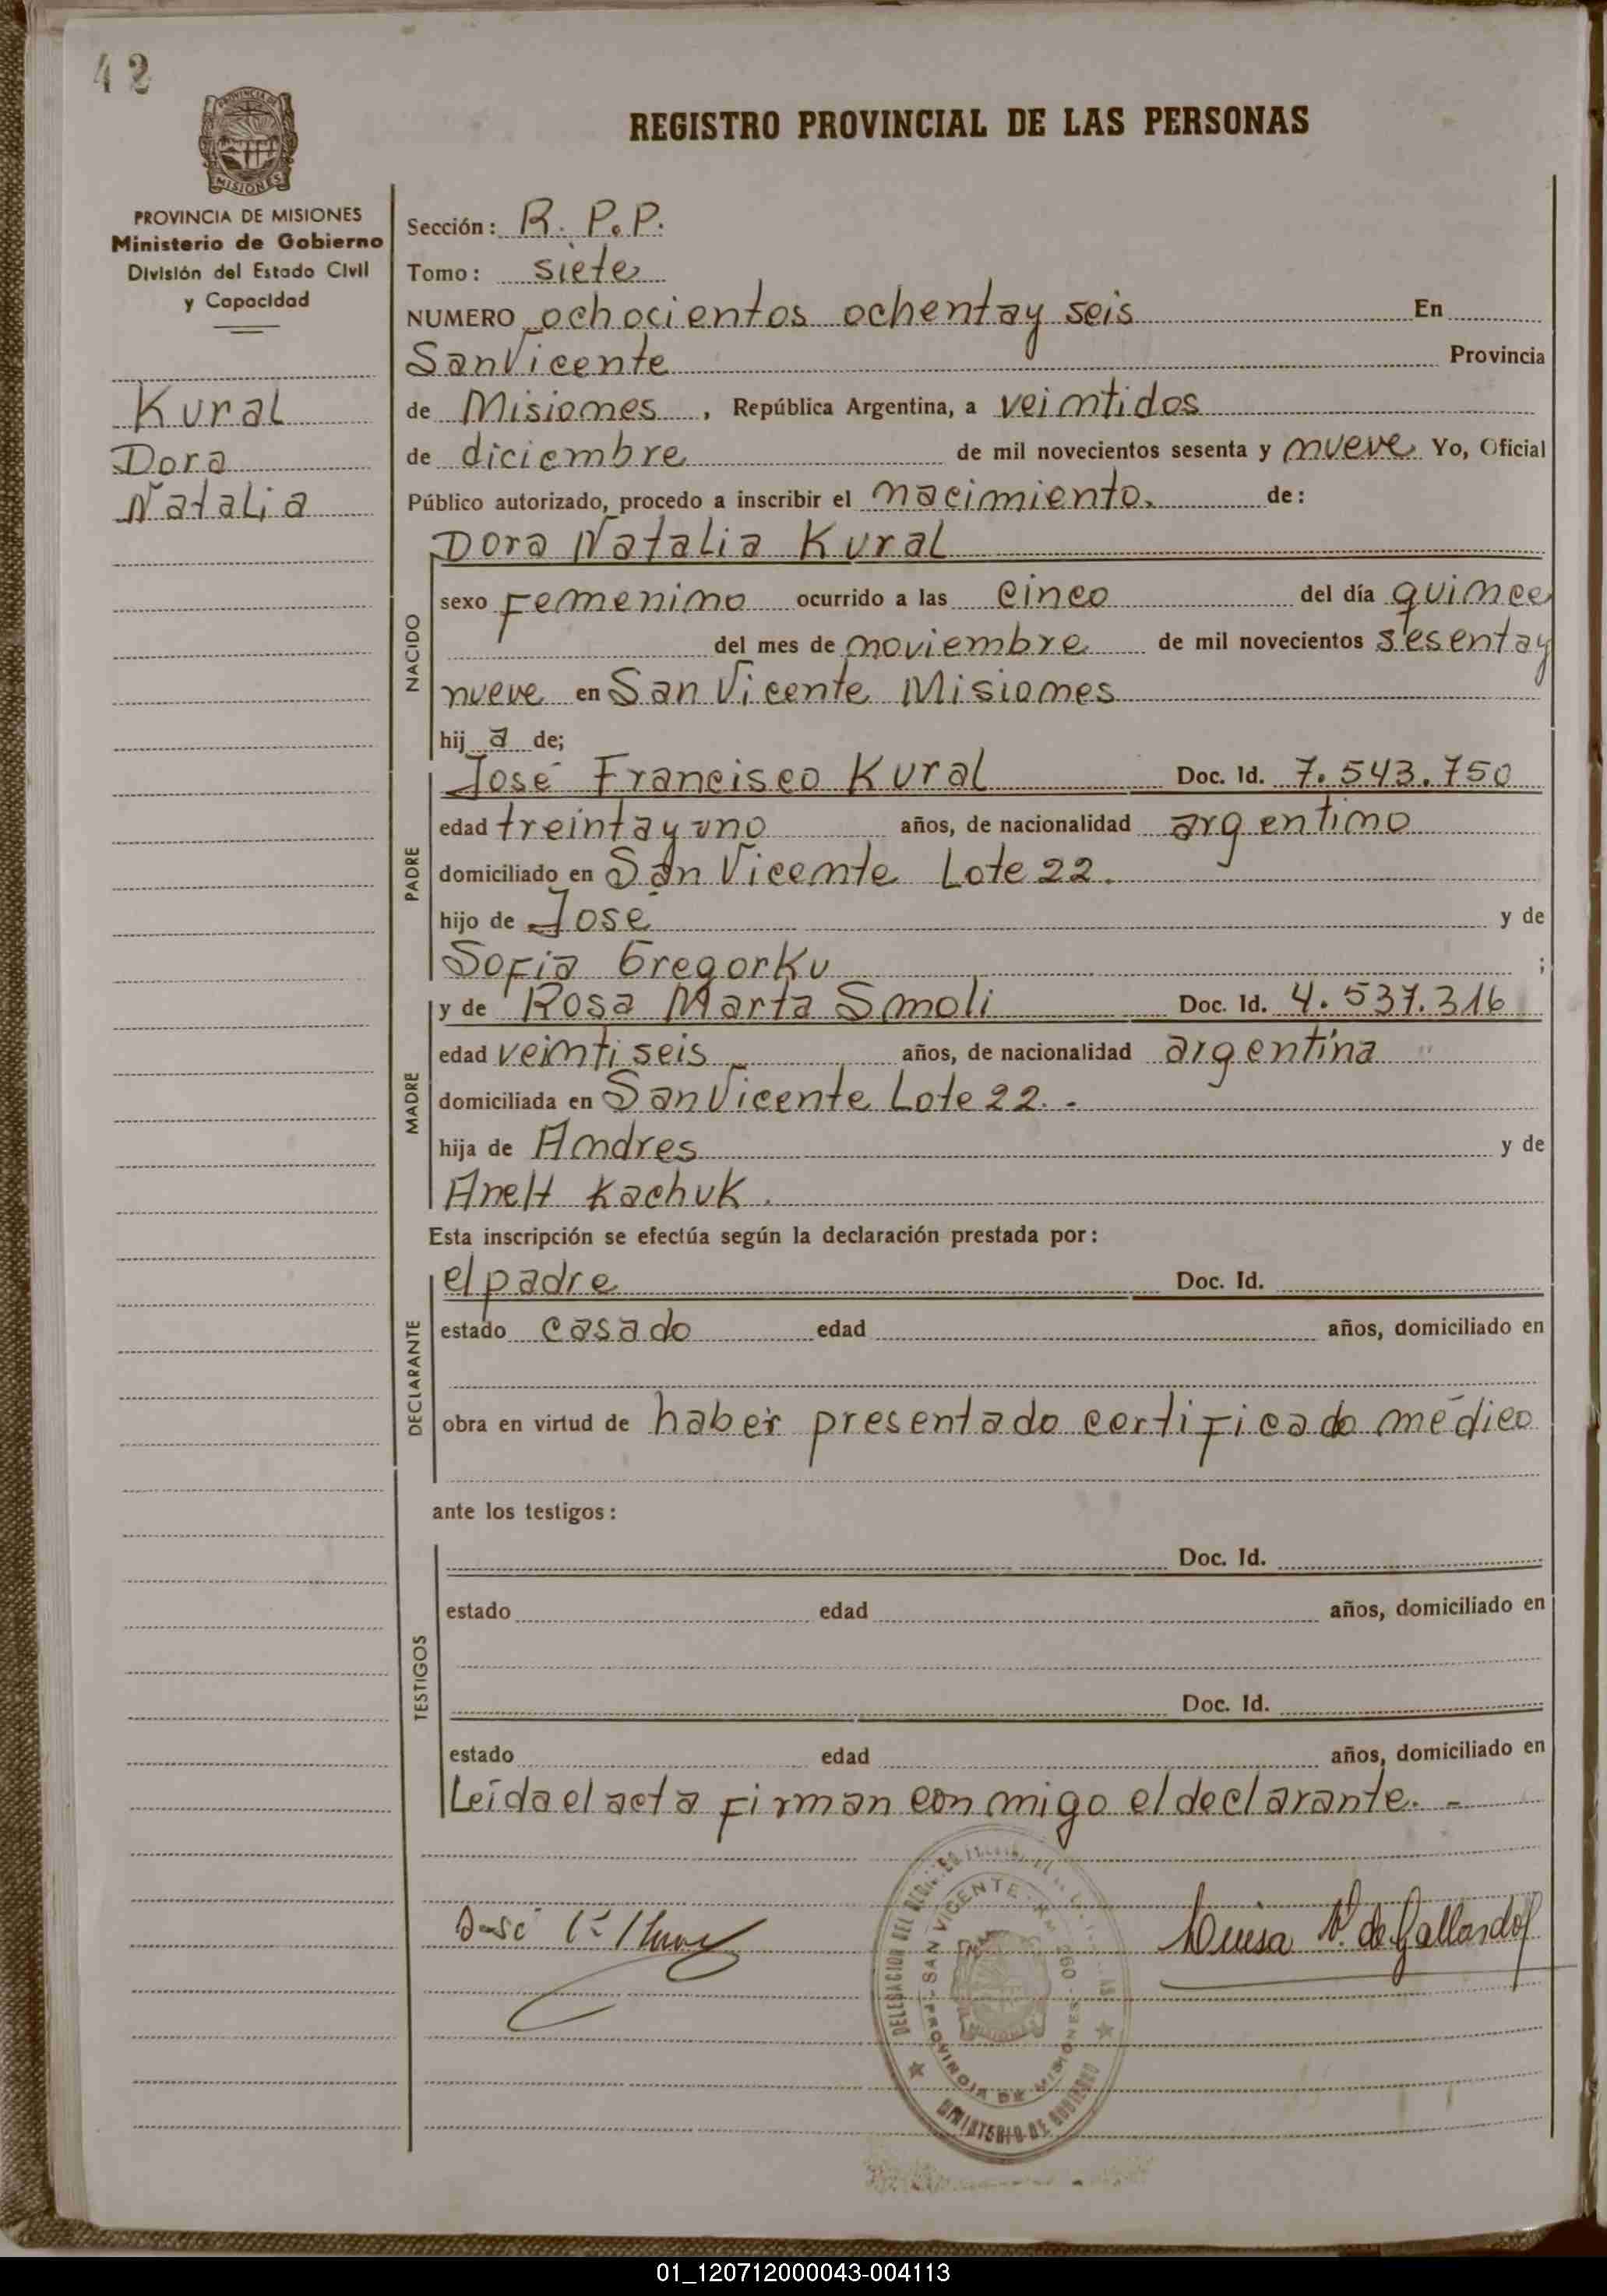 42
PROVINCIA DE
MISIONES
REGISTRO PROVINCIAL DE LAS PERSONAS
PROVINCIA DE MISIONES
Ministerio de Gobierno
División del Estado Civil
y Capacidad
Kural
Dora
Natalia
Sección: R. P. P.
Tomo: siete
NUMERO ochocientos ochenta y seis En
San Vicente Provincia
de Misiones, República Argentina, a veintidos
de diciembre de mil novecientos sesenta y nueve Yo, Oficial
Público autorizado, procedo a inscribir el nacimiento. de:
Dora Natalia Kural
NACIDO
sexo Femenino ocurrido a las cinco del día quince
del mes de noviembre de mil novecientos sesenta y
nueve en San Vicente Misiones
hija de;
PADRE
José Francisco Kural Doc. Id. 7.543.750
edad treinta y uno años, de nacionalidad argentino
domiciliado en San Vicente Lote 22.
hijo de José y de
Sofia Gregorku ;
MADRE
y de Rosa Marta Smoli Doc. Id. 4.537.316
edad veintiseis años, de nacionalidad argentina
domiciliada en San Vicente Lote 22. -
hija de Andres y de
Kachuk.
Esta inscripción se efectúa según la declaración prestada por:
DECLARANTE
el padre Doc. Id.
estado casado edad años, domiciliado en
obra en virtud de haber presentado certificado médico
ante los testigos:
TESTIGOS
Doc. Id.
estado edad años, domiciliado en
Doc. Id.
estado edad años, domiciliado en
Leída el acta firman con migo el declarante. -
José
Luisa V. de Gallardo
DELEGACION DEL
SAN VICENTE - KM 960
PROVINCIA DE MISIONES
MINISTERIO DE GOBIERNO
01_120712000043-004113